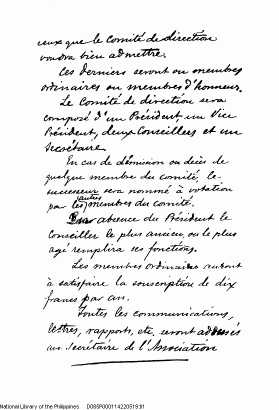 ceux que le Comité de direction
voudra bien admettre.
Ces derniers seront ou membres
ordinaires ou membres d'honneur.
Le Comité de direction sera
composé d'un Président un Vice
Président, deux Conseillers et un
Secrétaire
En cas de démission ou décès de
quelque membre du comité, le
successeur sera nommé à votation
par les autres membres du comité.
Par absence du Président le
Conseiller le plus ancien, ou le plus
agé remplira ses fonctions.
Les membres ordinaires auront
à satisfaire la souscription de dix
francs par an.
Toutes les communications,
lettres, rapports, etc. seront adressés
au Secrétaire de l'Association
National Library of the Philippines D086R00011422051911